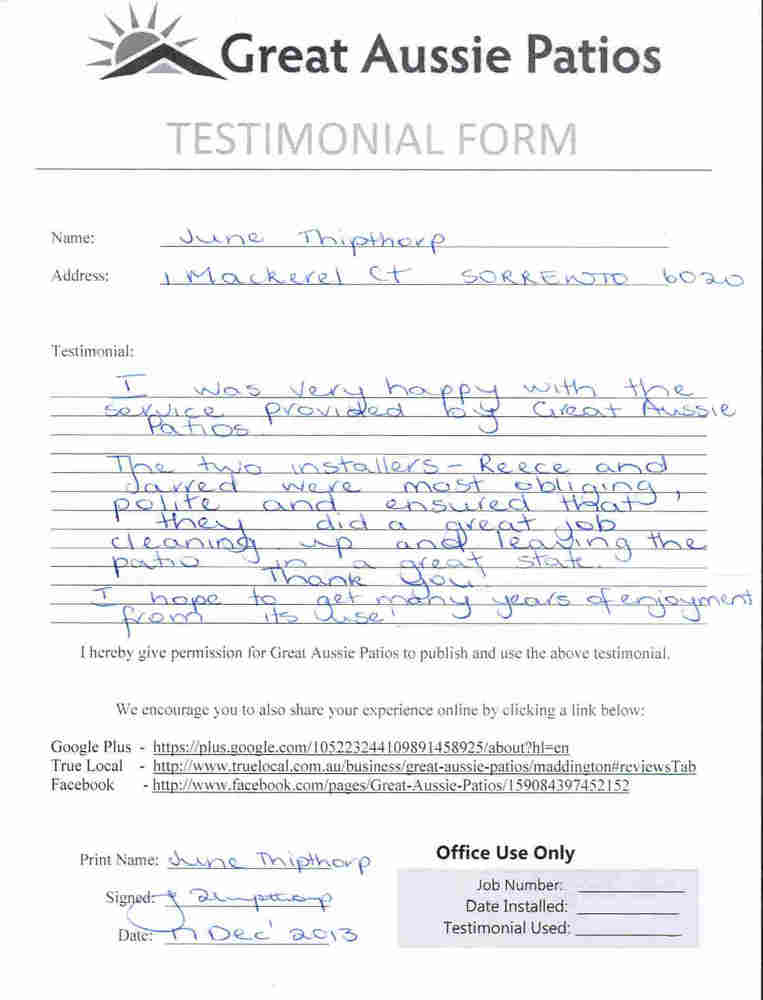 Great Aussie Patios
TESTIMONIAL FORM
Name: June Thipthorp
Address: 1 Mackerel Ct SORRENTO 6020
Testimonial:
I was very happy with the
service provided by Great Aussie
Patios.
The two installers - Reece and
Jarred were most obliging,
polite and ensured that
they did a great job
cleaning up and leaving the
patio in a great state.
Thank you!
I hope to get many years of enjoyment
from its use!
I hereby give permission for Great Aussie Patios to publish and use the above testimonial.
We encourage you to also share your experience online by clicking a link below:
Google Plus - https://plus.google.com/105223244109891458925/about?hl=en
True Local - http://www.truelocal.com.au/business/great-aussie-patios/maddington#reviewsTab
Facebook - http://www.facebook.com/pages/Great-Aussie-Patios/159084397452152
Print Name: June Thipthorp
Office Use Only
Signed:
Job Number:
Date Installed:
Testimonial Used:
Date: Dec' 2013